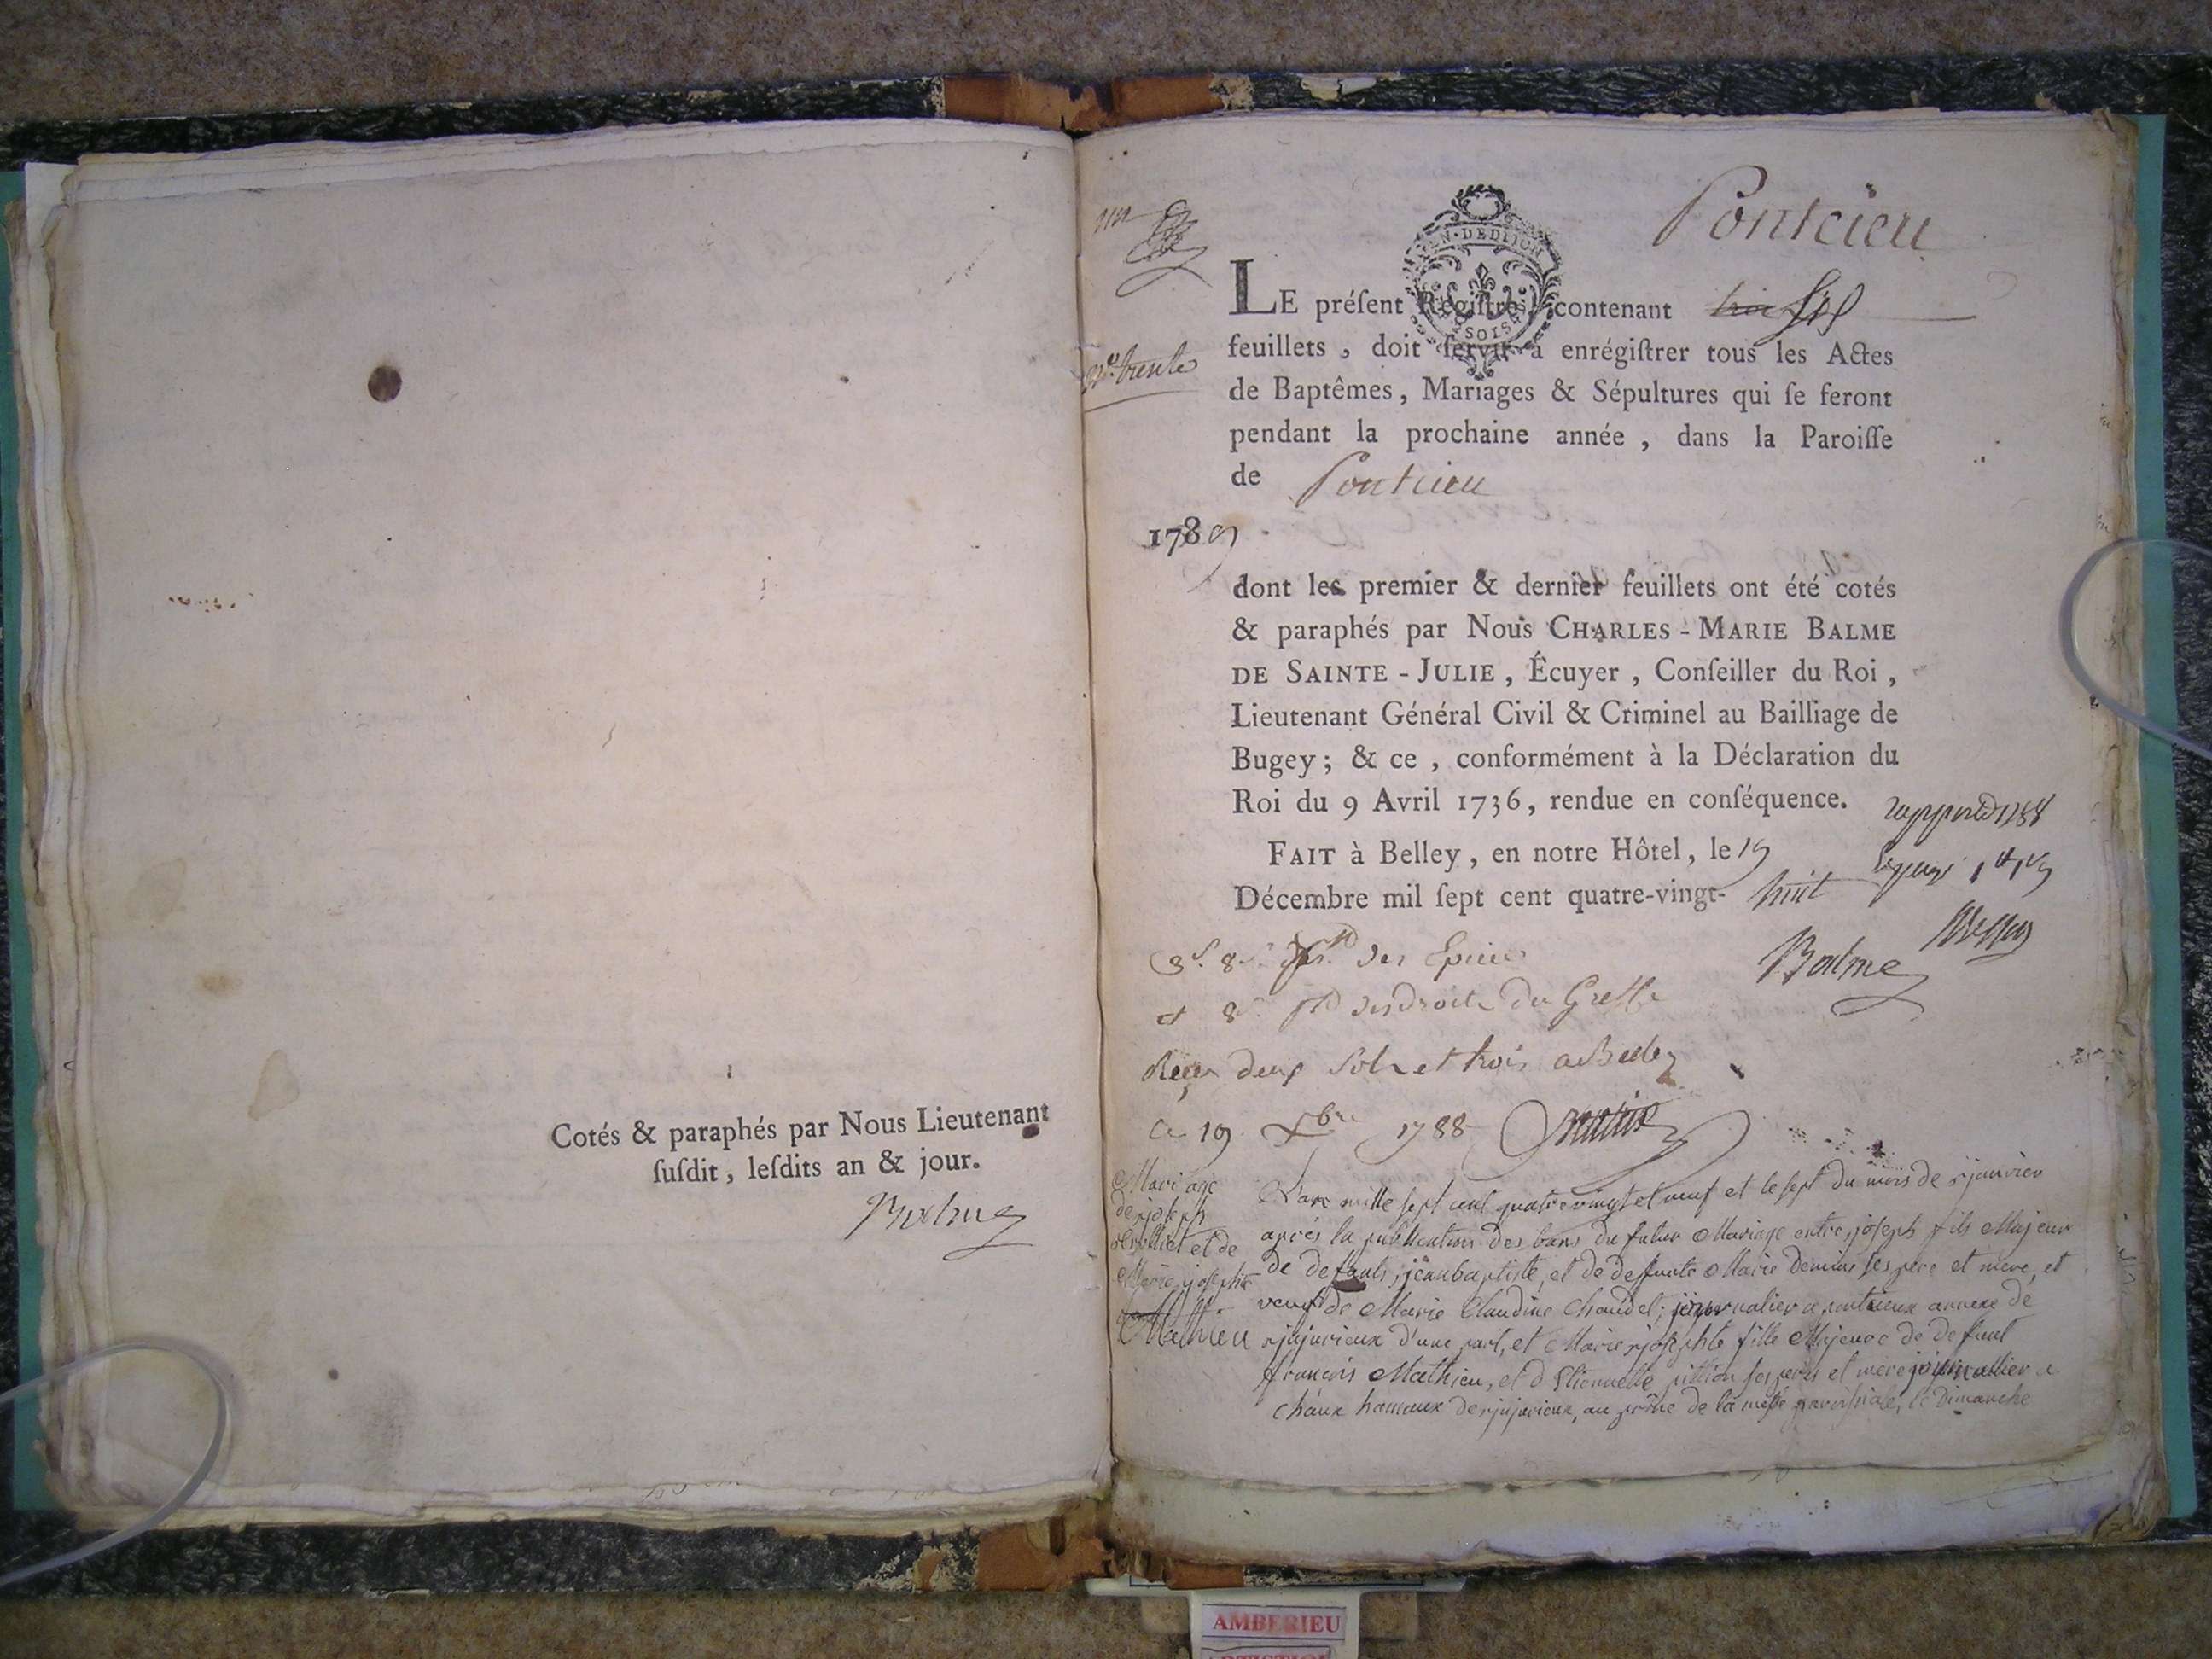 Cotés & paraphés par Nous Lieutenant
ſuſdit, leſdits an & jour.
Balme
Pontcieu
GEN · DE DIJON
LE préſent Regiſtre, contenant six
feuillets, doit ſervir à enrégiſtrer tous les Actes
de Baptêmes, Mariages & Sépultures qui ſe feront
pendant la prochaine année, dans la Paroiſſe
de Pontcieu
1789
dont les premier & dernier feuillets ont été cotés
& paraphés par Nous CHARLES-MARIE BALME
DE SAINTE-JULIE, Écuyer, Conſeiller du Roi,
Lieutenant Général Civil & Criminel au Bailliage de
Bugey; & ce, conformément à la Déclaration du
Roi du 9 Avril 1736, rendue en conſéquence.
FAIT à Belley, en notre Hôtel, le 19
Décembre mil ſept cent quatre-vingt-huit
Balme
3s. 8d. des Epices
et 8d. des droits du Greffe
Reçu deux sols et trois a Belley
Ce 19 Xbre 1788
Mariage
de joseph
et de
Marie josephte
Mathieu
L'an mille sept cent quatre vingt et neuf et le sept du mois de janvier
après la publication des bans du futur Mariage entre joseph fils Majeur
de defunts jean baptiste, et de defunte Marie ses père et mère, et
veuf de Marie Claudine Chaudet; journalier a pontcieux annexe de
jujurieux d'une part, et Marie josephte fille Majeure de defunt
françois Mathieu, et d'Etiennette ses père et mere journallier a
chaux hameaux de jujurieux, au prône de la messe paroissiale, le Dimanche
AMBERIEU